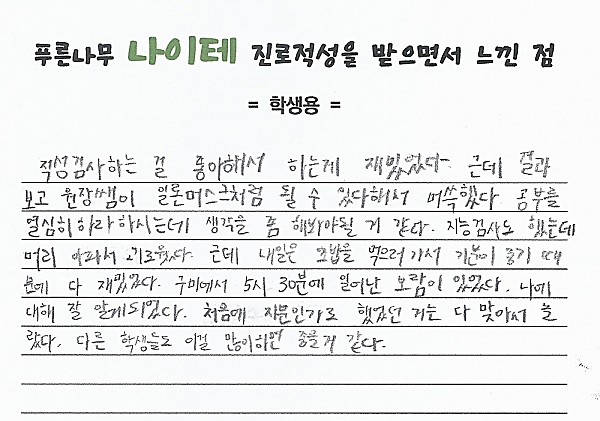 푸른나무 나이테 진로적성을 받으면서 느낀 점
= 학생용 =
적성검사하는 걸 좋아해서 하는게 재밌었다. 근데 결과
보고 원장쌤이 일론머스크처럼 될 수 있다해서 머쓱했다 공부를
열심히하라하시는데 생각을 좀 해봐야될 거 같다. 지능검사도 했는데
머리 아파서 괴로웠다. 근데 내일은 초밥을 먹으러가서 기분이 좋기 때
문에 다 재밌었다. 구미에서 5시 30분에 일어난 보람이 있었다. 나에
대해 잘 알게되었다. 처음에 지문인가로 했었던 거는 다 맞아서 놀
랐다. 다른 학생들도 이걸 많이하면 좋을거 같다.